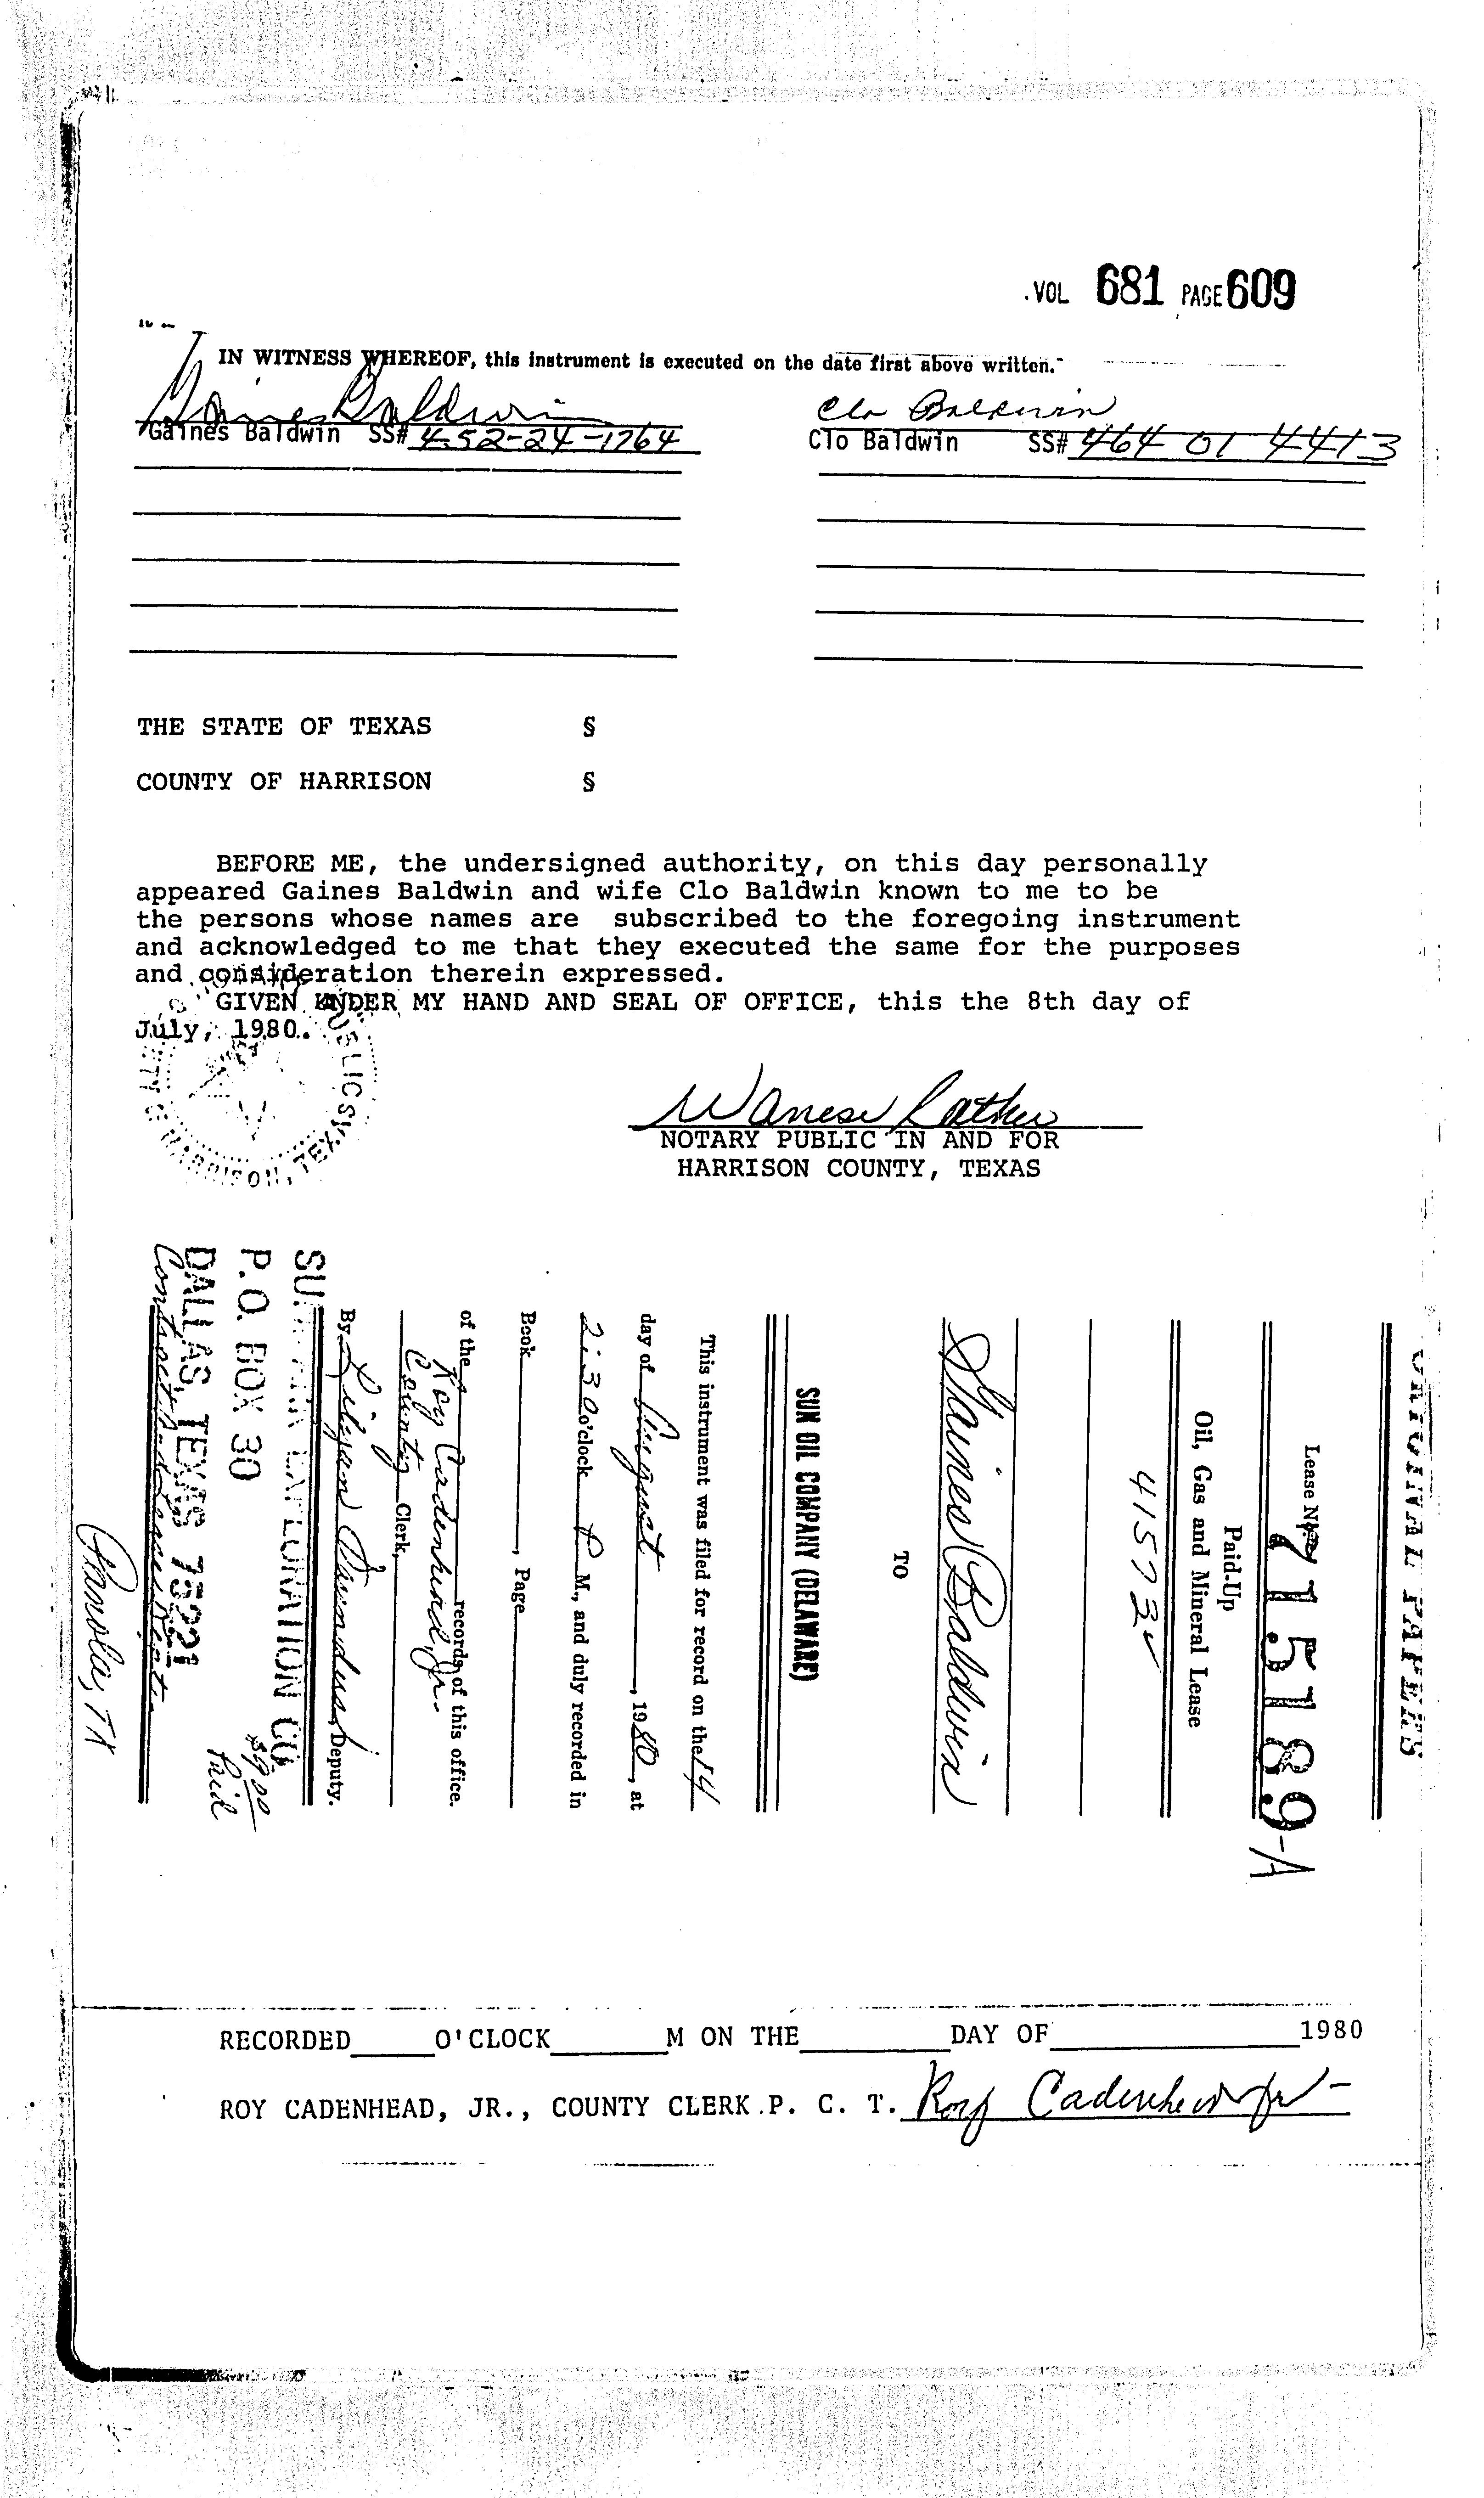 VOL 681 PAGE 609
IN WITNESS WHEREOF, this instrument is executed on the date first above written.
Gaines Baldwin Clo Baldwin
Gaines Baldwin SS# 452-24-1264 Clo Baldwin SS# 464 01 4413
THE STATE OF TEXAS §
COUNTY OF HARRISON §
BEFORE ME, the undersigned authority, on this day personally
appeared Gaines Baldwin and wife Clo Baldwin known to me to be
the persons whose names are subscribed to the foregoing instrument
and acknowledged to me that they executed the same for the purposes
and consideration therein expressed.
GIVEN UNDER MY HAND AND SEAL OF OFFICE, this the 8th day of
July, 1980.
HARRISON, TEXAS
NOTARY PUBLIC IN AND FOR
HARRISON COUNTY, TEXAS
ORIGINAL PAPERS
Lease No. 715189-A
Paid-Up
Oil, Gas and Mineral Lease
41573
Gaines Baldwin
TO
SUN OIL COMPANY (DELAWARE)
This instrument was filed for record on the 14
day of August, 1980, at
2:30 o'clock P M., and duly recorded in
Book, Page
of the records of this office.
Roy Cadenhead, Jr.
County Clerk,
By Deputy.
EXPLORATION CO.
P.O. BOX 30
DALLAS, TEXAS 75221
$9.00
Paid
Panola, TX
RECORDED O'CLOCK M ON THE DAY OF 1980
ROY CADENHEAD, JR., COUNTY CLERK P. C. T. Roy Cadenhead Jr